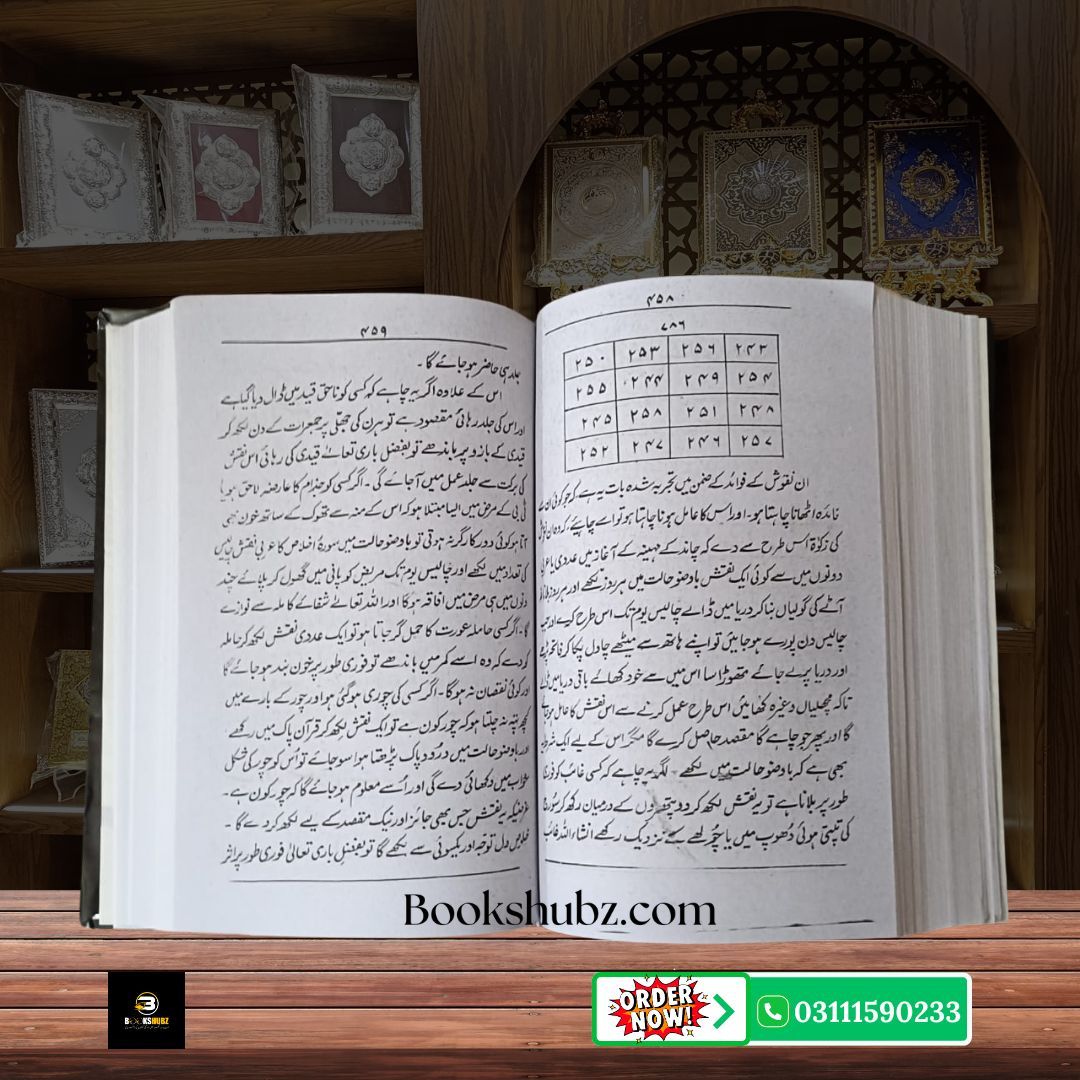 ۴۵۸
۷۸۶
۲۴۳ ۲۵۶ ۲۵۳ ۲۵۰
۲۵۴ ۲۴۹ ۲۴۴ ۲۵۵
۲۴۸ ۲۵۱ ۲۵۸ ۲۴۵
۲۵۷ ۲۴۶ ۲۴۷ ۲۵۲
ان نقوش کے فوائد کے ضمن میں تجربہ شدہ بات یہ ہے کہ جو کوئی ان سے
فائدہ اٹھانا چاہتا ہو۔ اور اس کا عامل ہونا چاہتا ہو تو اسے چاہیئے، کہ وہ ان
کی زکوٰۃ اس طرح سے دے کہ چاند کے مہینہ کے آغاز میں عددی یا عربی
دونوں میں سے کوئی ایک نقش با وضو حالت میں ہر روز لکھے اور ہر روز
آٹے کی گولیاں بنا کر دریا میں ڈالے چالیس یوم تک اس طرح کرے اور جب
چالیس دن پورے ہو جائیں تو اپنے ہاتھ سے میٹھے چاول پکا کر فاتحہ پڑھے
اور دریا پر لے جائے تھوڑا سا اس میں سے خود کھائے باقی دریا میں ڈالے
تاکہ مچھلیاں وغیرہ کھائیں اس طرح عمل کرنے سے اس نقش کا عامل ہو جائے
گا اور پھر جو چاہے گا مقصد حاصل کرے گا مگر اس کے لیے ایک شرط یہ
بھی ہے کہ با وضو حالت میں لکھے۔ اگر یہ چاہے کہ کسی غائب کو فوری
طور پر بلانا ہے تو یہ نقش لکھ کر دو پتھروں کے درمیان رکھ کر سورج
کی تپتی ہوئی دھوپ میں یا چولھے کے نزدیک رکھے انشاءاللہ غائب
۴۵۹
جلد ہی حاضر ہو جائے گا۔
اس کے علاوہ اگر یہ چاہے کہ کسی کو ناحق قید میں ڈال دیا گیا ہے
اور اس کی جلد رہائی مقصود ہے تو ہرن کی جھلی پر جمعرات کے دن لکھ کر
قیدی کے بازو پر باندھے تو بفضل باری تعالےٰ قیدی کی رہائی اس نقش
کی برکت سے جلد عمل میں آجائے گی۔ اگر کسی کو جذام کا عارضہ لاحق ہو یا
ٹی بی کے مرض میں ایسا مبتلا ہو کہ اس کے منہ سے تھوک کے ساتھ خون بھی
آتا ہو کوئی دور کارگر نہ ہوتی تو با وضو حالت میں سورۃ اخلاص کا عربی نقش بیس
کی تعداد میں لکھے اور چالیس یوم تک مریض کو پانی میں گھول کر پلائے چند
دنوں میں ہی مرض میں افاقہ ہوگا اور اللہ تعالےٰ شفائے کاملہ سے نوازے
گا۔ اگر کسی حاملہ عورت کا حمل گر جاتا ہو تو ایک عددی نقش لکھ کر حاملہ
کو دے کہ وہ اسے کمر میں باندھے تو فوری طور پر خون بند ہو جائے گا
اور کوئی نقصان نہ ہوگا۔ اگر کسی کی چوری ہوگئی ہو اور چور کے بارے میں
کچھ پتہ نہ چلتا ہو کہ چور کون ہے تو ایک نقش لکھ کر قرآن پاک میں رکھے
اور با وضو حالت میں درود پاک پڑھتا ہوا سو جائے تو اُس کو چور کی شکل
خواب میں دکھائی دے گی اور اُسے معلوم ہو جائے گا کہ چور کون ہے۔
غرضیکہ یہ نقش جس بھی جائز اور نیک مقصد کے لیے لکھ کر دے گا۔
خلوص دل توجہ اور یکسوئی سے لکھے گا تو بفضل باری تعالیٰ فوری طور پر اثر
Bookshubz.com
BOOKSHUBZ
ORDER NOW!
03111590233